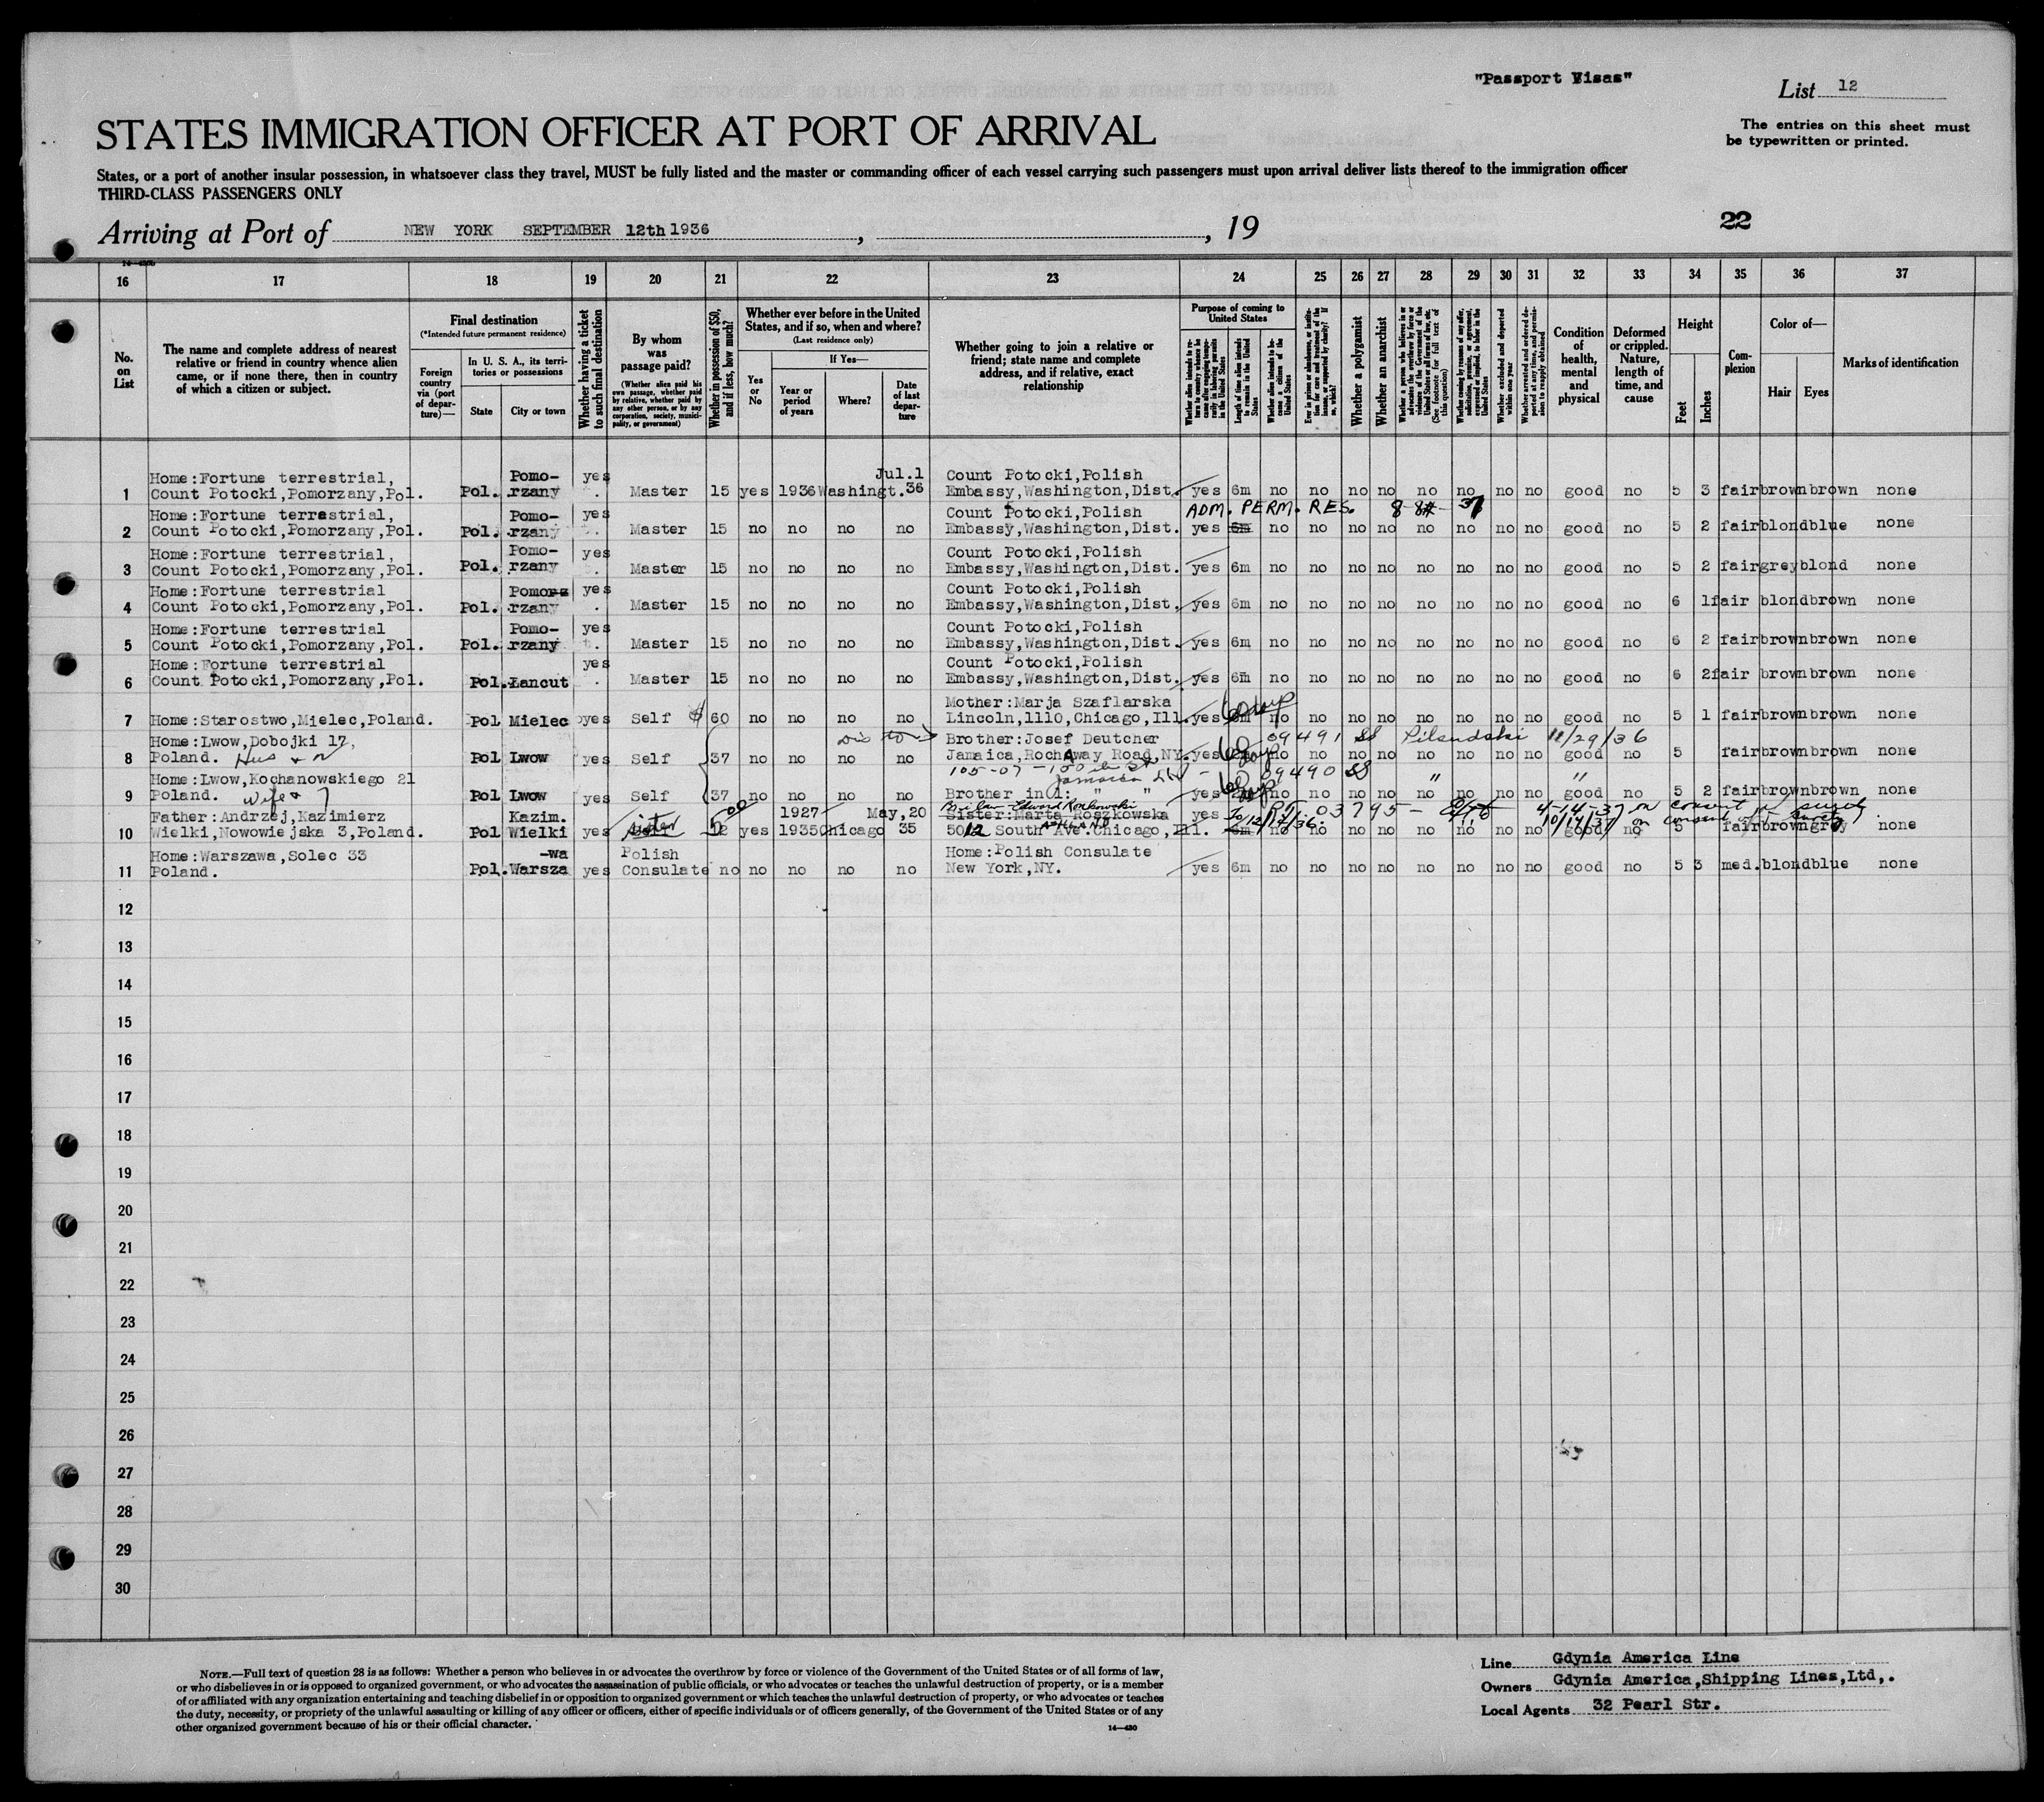 "Passport Visas"
List 12
STATES IMMIGRATION OFFICER AT PORT OF ARRIVAL
The entries on this sheet must
be typewritten or printed.
States, or a port of another insular possession, in whatsoever class they travel, MUST be fully listed and the master or commanding officer of each vessel carrying such passengers must upon arrival deliver lists thereof to the immigration officer
THIRD-CLASS PASSENGERS ONLY
Arriving at Port of NEW YORK SEPTEMBER 12th 1936, , 19
22
16 17 18 19 20 21 22 23 24 25 26 27 28 29 30 31 32 33 34 35 36 37
No. on List
The name and complete address of nearest
relative or friend in country whence alien
came, or if none there, then in country
of which a citizen or subject.
Final destination
(*Intended future permanent residence)
Foreign country via (port of departure)—
In U. S. A., its territories or possessions
State
City or town
Whether having a ticket to such final destination
By whom was passage paid?
(Whether alien paid his own passage, whether paid by relative, whether paid by any other person, or by any corporation, society, municipality, or government)
Whether in possession of $50, and if less, how much?
Whether ever before in the United
States, and if so, when and where?
(Last residence only)
Yes or No
If Yes—
Year or period of years
Where?
Date of last departure
Whether going to join a relative or
friend; state name and complete
address, and if relative, exact
relationship
Purpose of coming to United States
Length of time alien intends to remain in the United States
Whether alien intends to become a citizen of the United States
Whether a polygamist
Whether an anarchist
(See footnote for full text of this question)
Whether excluded and deported within one year
Whether arrested and ordered deported at any time, and permission to reapply obtained
Condition of health, mental and physical
Deformed or crippled. Nature, length of time, and cause
Height
Feet
Inches
Complexion
Color of—
Hair
Eyes
Marks of identification
Home:Fortune terrestrial, Pomo- yes Jul.1 Count Potocki,Polish
1 Count Potocki,Pomorzany,Pol. Pol. rzany Master 15 yes 1936 Washingt. 36 Embassy,Washington,Dist. yes 6m no no no no no no no no good no 5 3 fair brown brown none
Home:Fortune terrestrial, Pomo- yes Count Potocki,Polish ADM. PERM. RES. 8-8-37
2 Count Potocki,Pomorzany,Pol. Pol. rzany Master 15 no no no no Embassy,Washington,Dist. yes 6m no no no no no no no no good no 5 2 fair blond blue none
Home:Fortune terrestrial, Pomo- yes Count Potocki,Polish
3 Count Potocki,Pomorzany,Pol. Pol. rzany Master 15 no no no no Embassy,Washington,Dist. yes 6m no no no no no no no no good no 5 2 fair grey blond none
Home:Fortune terrestrial Pomo yes Count Potocki,Polish
4 Count Potocki,Pomorzany,Pol. Pol. rzany Master 15 no no no no Embassy,Washington,Dist. yes 6m no no no no no no no no good no 6 1 fair blond brown none
Home:Fortune terrestrial Pomo- yes Count Potocki,Polish
5 Count Potocki,Pomorzany,Pol. Pol. rzany Master 15 no no no no Embassy,Washington,Dist. yes 6m no no no no no no no no good no 6 2 fair brown brown none
Home:Fortune terrestrial yes Count Potocki,Polish
6 Count Potocki,Pomorzany,Pol. Pol. Łancut Master 15 no no no no Embassy,Washington,Dist. yes 6m no no no no no no no no good no 6 2 fair brown brown none
Mother:Marja Szaflarska
7 Home:Starostwo,Mielec,Poland. Pol Mielec yes Self $ 60 no no no no Lincoln,1110,Chicago,Ill. yes no no no no no no no no good no 5 1 fair brown brown none
Home:Lwow,Dobojki 17, Brother:Josef Deutcher 09491 SS Pilsudski 11/29/36
8 Poland. Pol Lwow yes Self 37 no no no no Jamaica,Rochaway Road,NY. yes no no no no no no no no good no 5 fair brown brown none
105-07-150
Jamaica
Home:Lwow,Kochanowskiego 21 09490 SS " "
9 Poland. Wife Pol Lwow yes Self 37 no no no no Brother in l: " " yes no no no no no no no no good no 5 2 fair brown brown none
Father:Andrzej,Kazimierz Kazim. 1927- May,20 Sister:Marta Roszkowska yes 03795 4-14-37 on consent of surety
10 Wielki,Nowowiejska 3,Poland. Pol Wielki yes sister yes 1935 Chicago 35 5012 South Ave.Chicago,Ill. 6m no no no no no no no no good no 5 fair brown grey none
10/14/37 on consent of surety
Home:Warszawa,Solec 33 -wa Polish Home:Polish Consulate
11 Poland. Pol. Warsza yes Consulate no no no no no New York,NY. yes 6m no no no no no no no no good no 5 3 med. blond blue none
12
13
14
15
16
17
18
19
20
21
22
23
24
25
26
27
28
29
30
NOTE.—Full text of question 28 is as follows: Whether a person who believes in or advocates the overthrow by force or violence of the Government of the United States or of all forms of law,
or who disbelieves in or is opposed to organized government, or who advocates the assassination of public officials, or who advocates or teaches the unlawful destruction of property, or is a member
of or affiliated with any organization entertaining and teaching disbelief in or opposition to organized government or which teaches the unlawful destruction of property, or who advocates or teaches
the duty, necessity, or propriety of the unlawful assaulting or killing of any officer or officers, either of specific individuals or of officers generally, of the Government of the United States or of any
other organized government because of his or their official character.
14—430
Line Gdynia America Line
Owners Gdynia America,Shipping Lines,Ltd,.
Local Agents 32 Pearl Str.